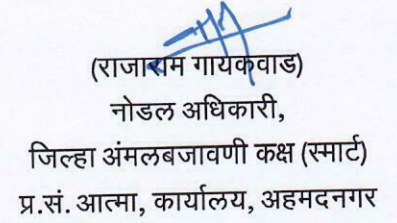 (राजाराम गायकवाड)
नोडल अधिकारी,
जिल्हा अंमलबजावणी कक्ष (स्मार्ट)
प्र.सं. आत्मा, कार्यालय, अहमदनगर